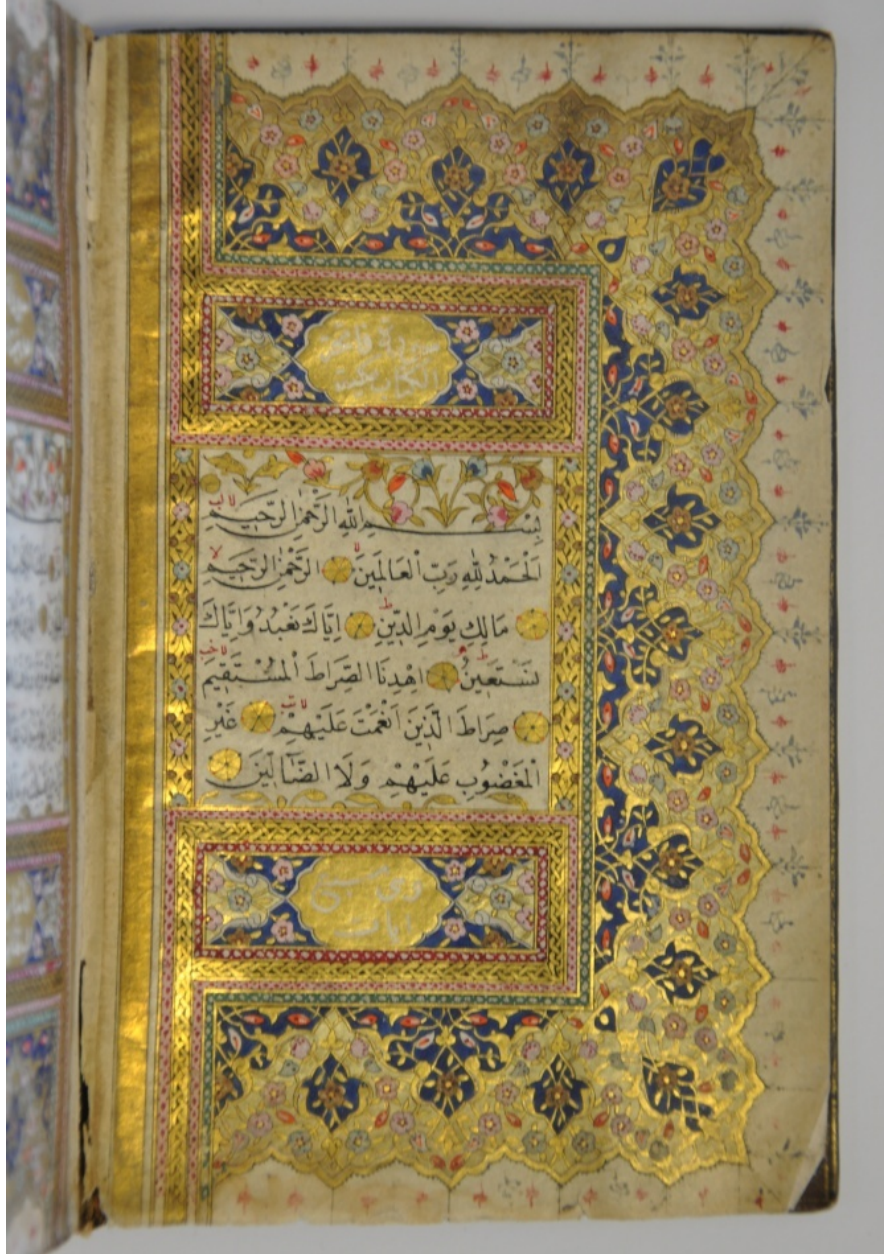 سورة فاتحة
الكتاب
بِسْمِ اللهِ الرَّحْمٰنِ الرَّحِيمِ
اَلْحَمْدُ لِلّٰهِ رَبِّ الْعَالَمِينَ الرَّحْمٰنِ الرَّحِيمِ
مَالِكِ يَوْمِ الدِّينِ اِيَّاكَ نَعْبُدُ وَاِيَّاكَ
نَسْتَعِينُ اِهْدِنَا الصِّرَاطَ الْمُسْتَقِيمَ
صِرَاطَ الَّذِينَ اَنْعَمْتَ عَلَيْهِمْ غَيْرِ
الْمَغْضُوبِ عَلَيْهِمْ وَلَا الضَّٓالِّينَ
وهي